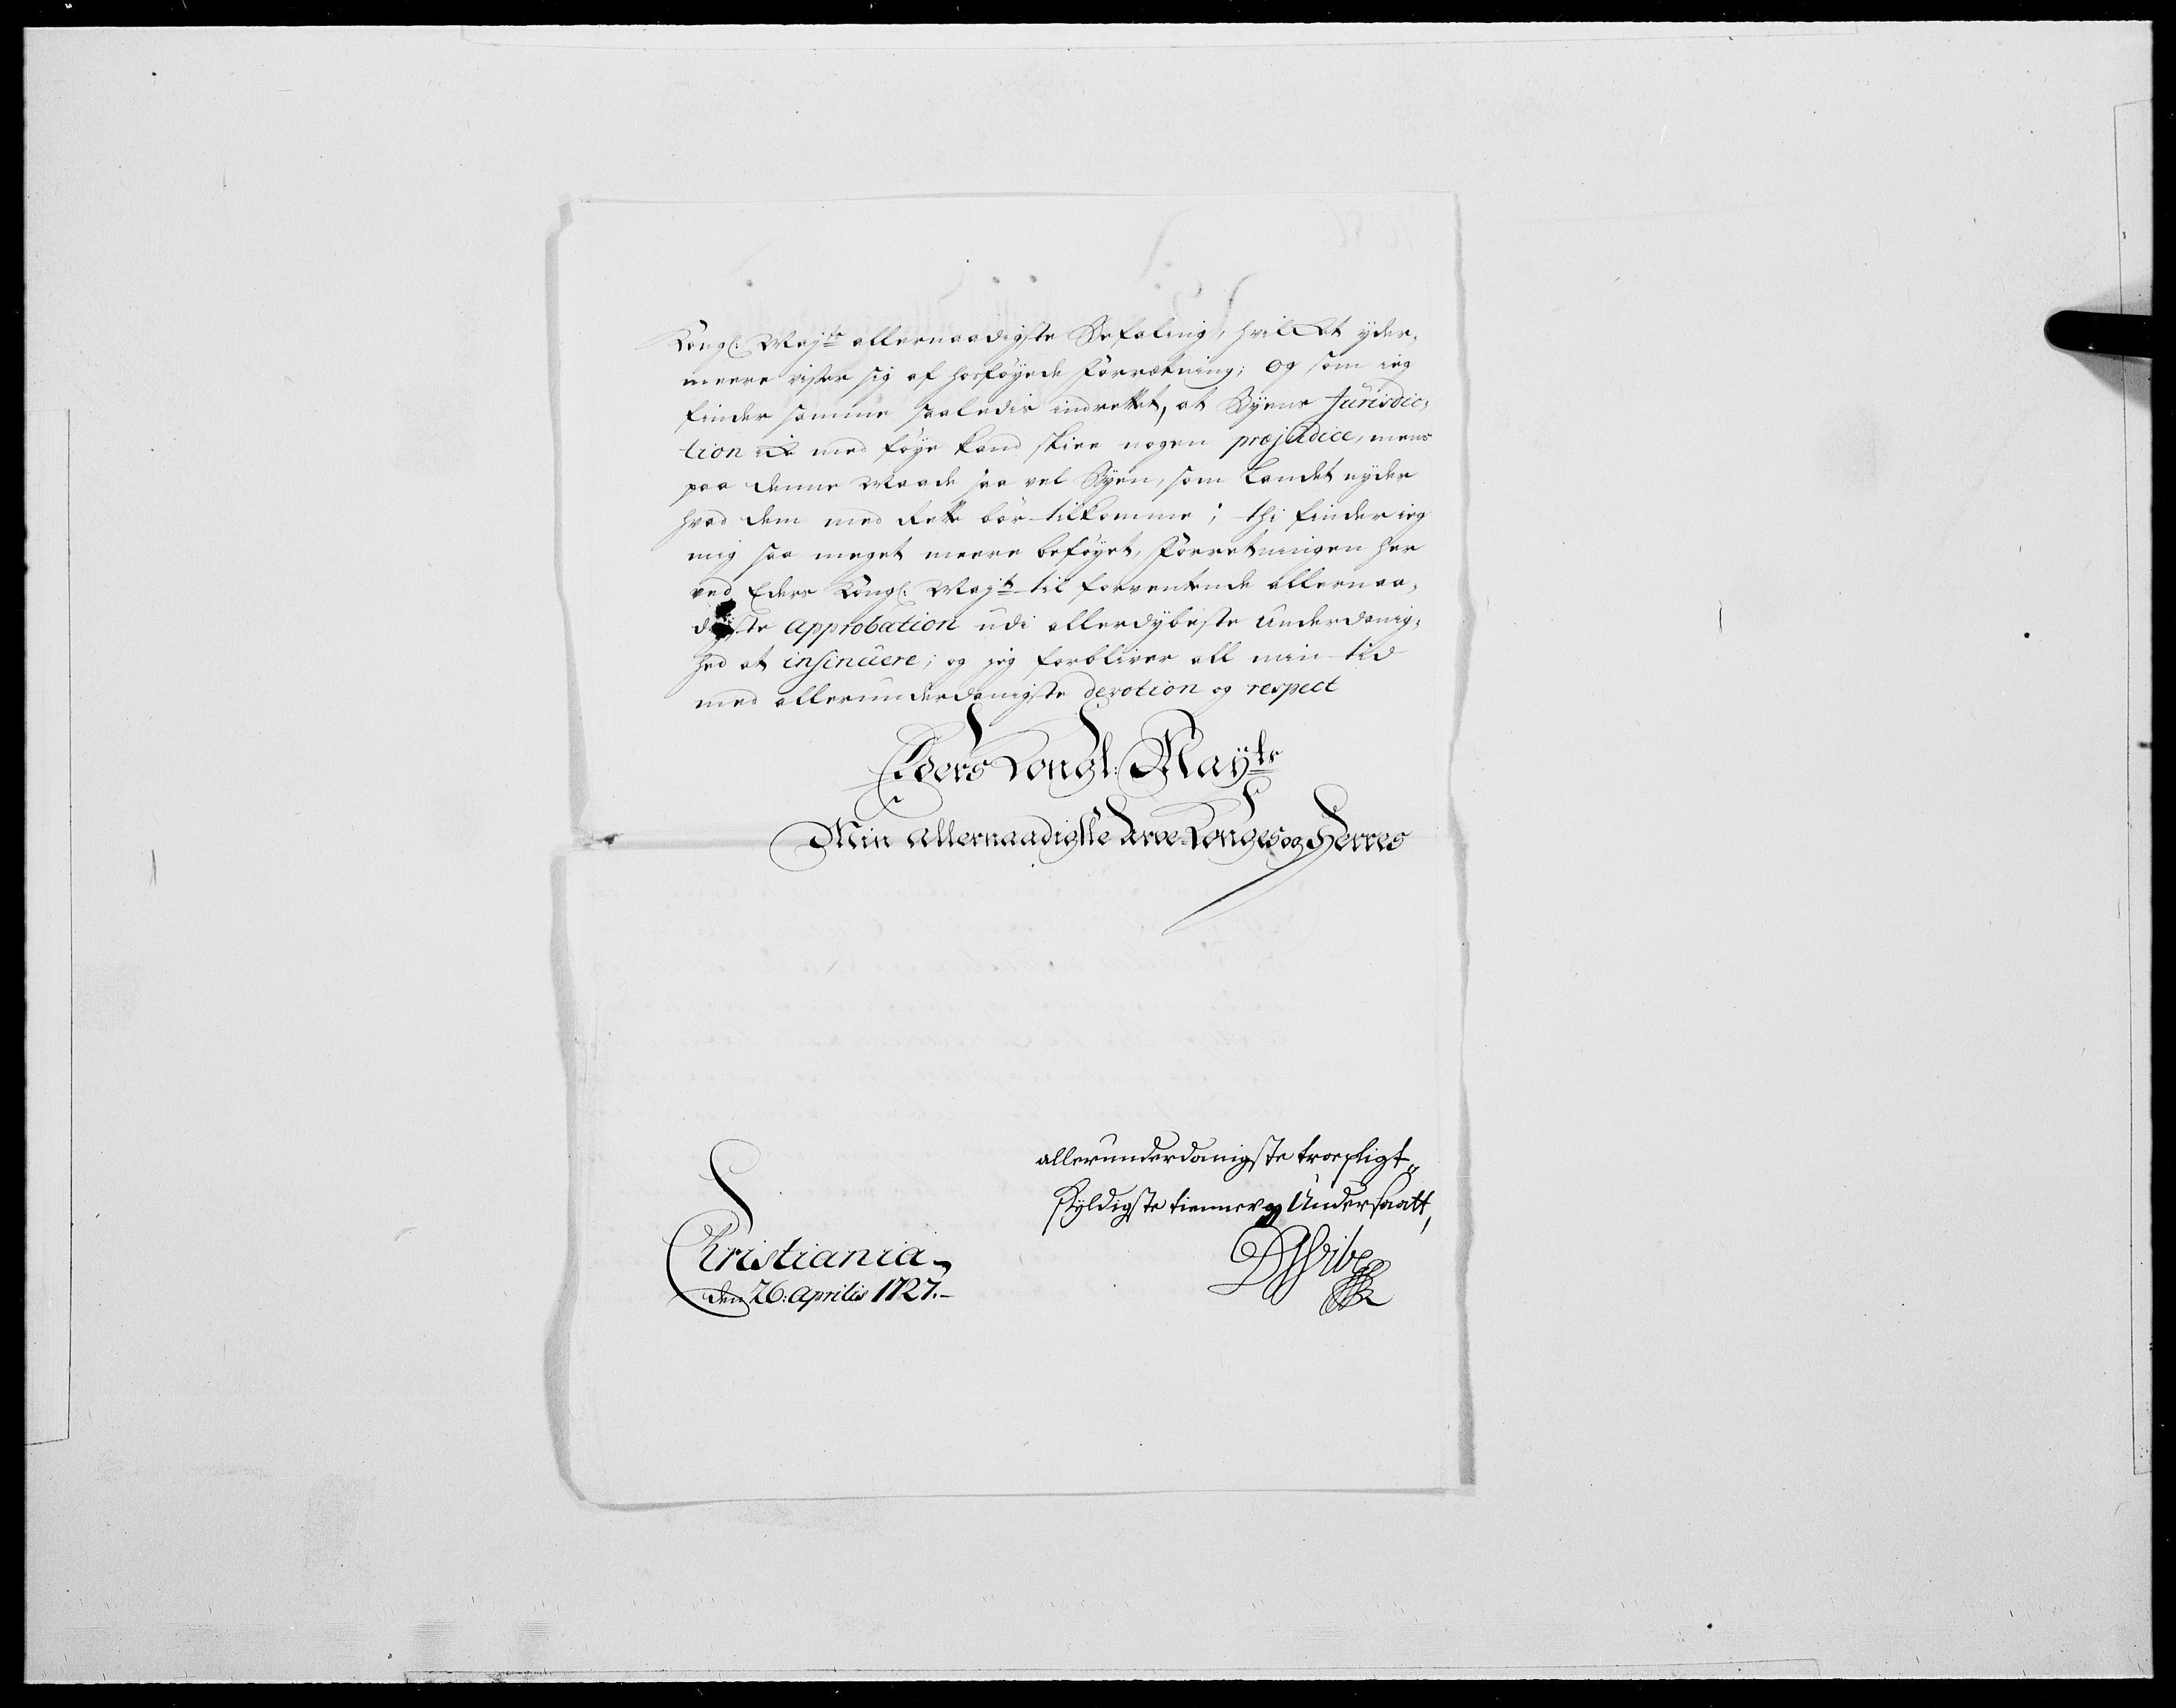 Kongl: Maj:ts allernaadigste Befaling, hvilket yder-
meere viser sig af hosføyede Forretning; og som ieg
finder samme saaledis indrettet, at Byens Jurisdic-
tion ei med føye kand skiee nogen præjudice, mens
paa denne Maade saa vel Byen, som Landet nyder
hvad dem med Rette bør tilkomme; thi finder ieg
mig saa meget meere beføyet, Forretningen her
ved Eders Kongl: Maj:ts til forventende allernaa-
digste approbation udi allerdybeste underdanig-
hed at insinuere; og jeg forbliver all min tid
med allerunderdanigste devotion og respect
Eders Kongl: Mayts
Min allernaadigste Arve-Konges og Herres
allerunderdanigste troepligt-
skyldigste tienner og Undersaatt,
DVibe
Christiania,
den 26: Aprilis 1727.